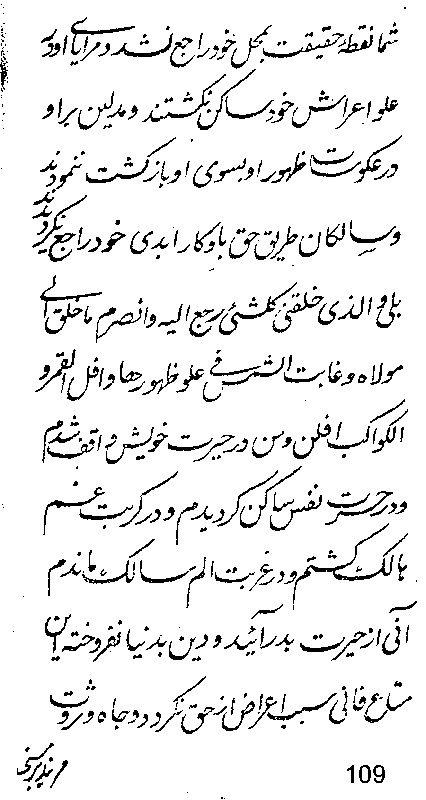 شما نقطهٔ حقیقت بمحل خود راجع نشد و مرایای اوبه
علو اعراش خود ساکن نگشتند و مدلین بر او
در عکوسات ظهور او بسوی او بازگشت ننمودند
وسالکان طریق حق باوکار ابدی خود راجع نگردیدند
بلی و الذی خلقنی کلشئ رجع الیه وانصرم ما خلق الی
مولاه وغابت الشمس فی علو ظهورها وافل القمر و
الکواکب افلن ومن در حیرت خویش واقف شدم
ودر حسرت نفس ساکن گردیدم و در کربت غم
هالک گشتم ودر غربت الم سالک ماندم
آنی از حیرت بدر آئید و دین بدنیا نفروخته این
متاع فانی سبب اعراض از حق نگردد و جاه وثروت
109